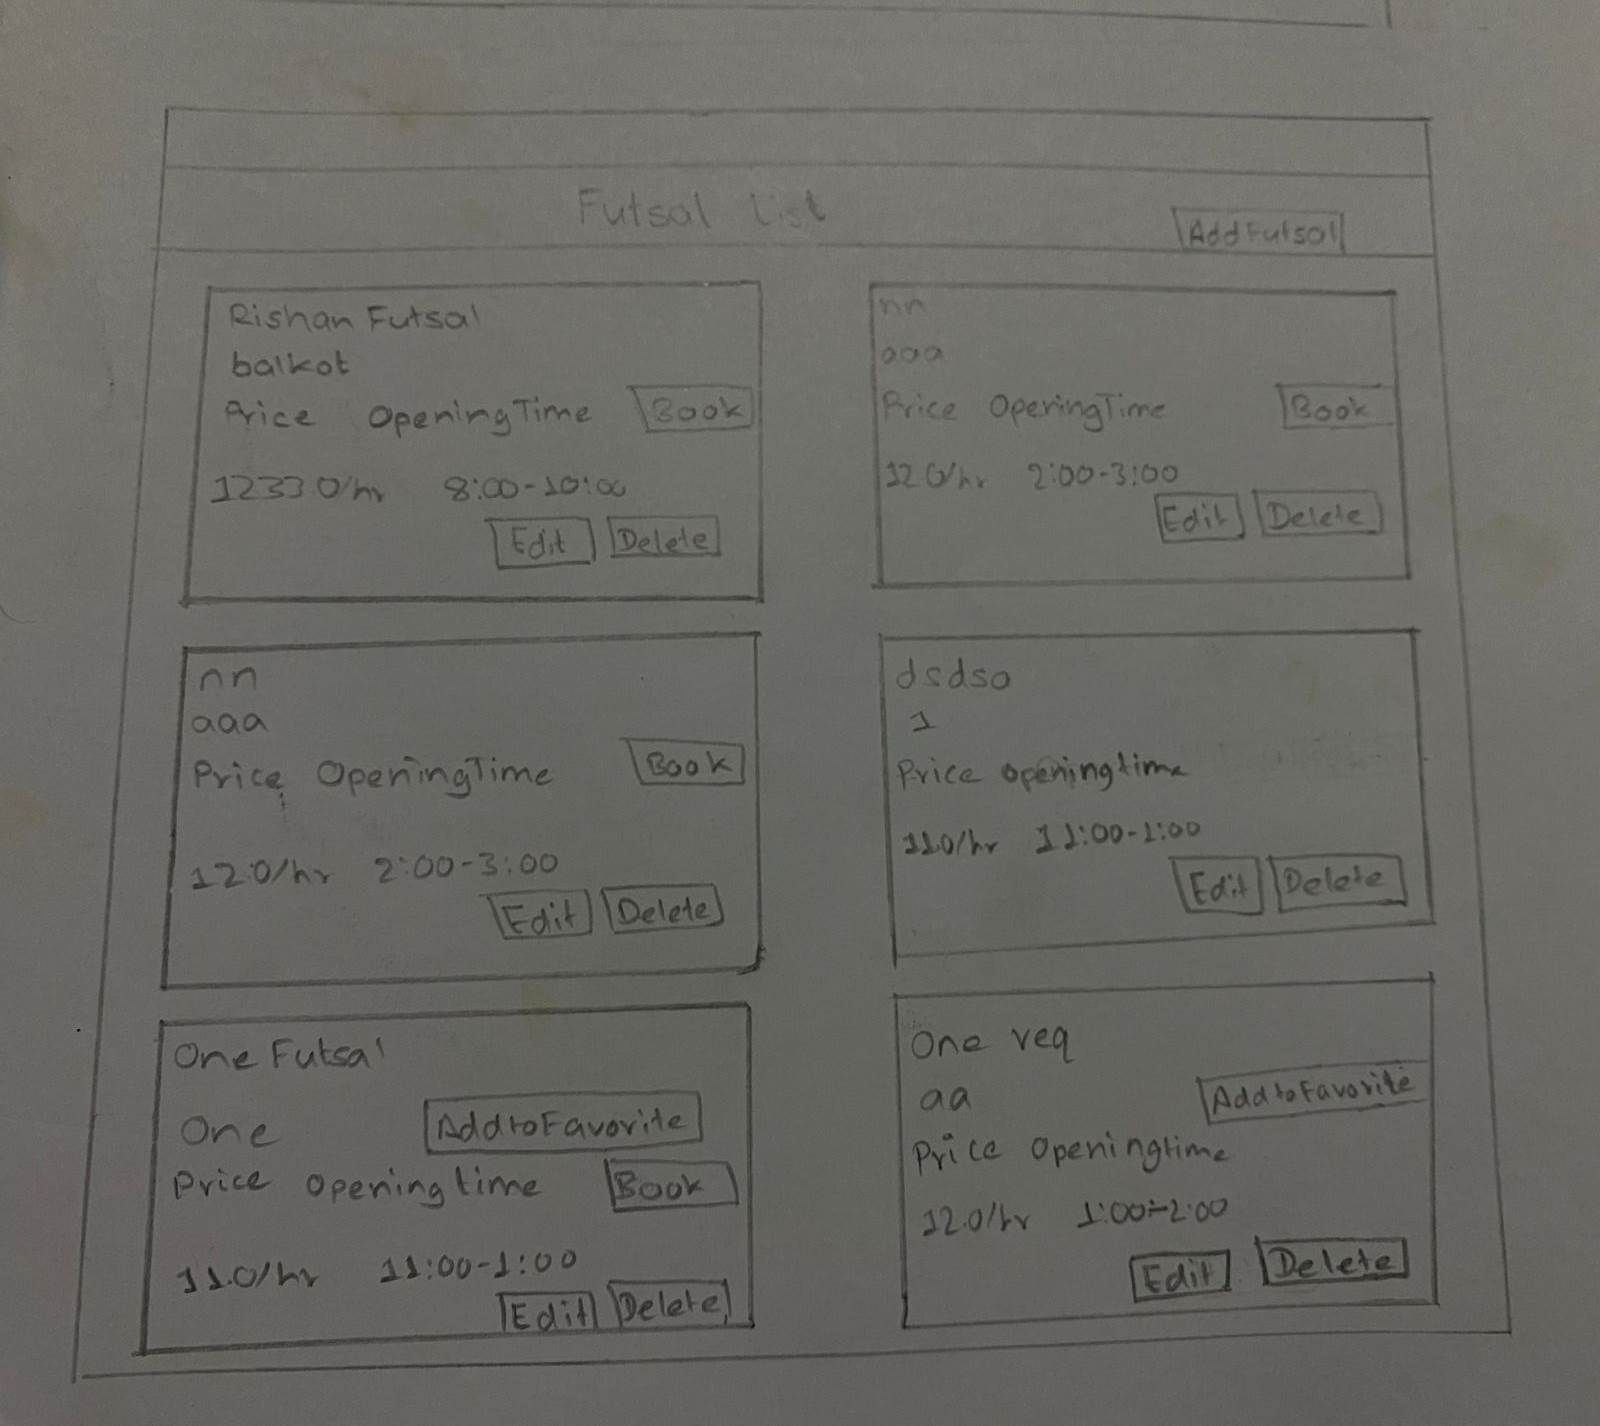 Futsal List
AddFutsal
Rishan Futsal
balkot
Price OpeningTime Book
1233.0/hr 8:00-10:00
Edit Delete
nn
aaa
Price OpeningTime Book
12.0/hr 2:00-3:00
Edit Delete
nn
aaa
Price OpeningTime Book
12.0/hr 2:00-3:00
Edit Delete
dsdsa
1
Price openingtime
11.0/hr 11:00-1:00
Edit Delete
One Futsal
One AddtoFavorite
Price opening time Book
11.0/hr 11:00-1:00
Edit Delete
One req
aa AddtoFavorite
Price Openingtime
12.0/hr 1:00-2:00
Edit Delete